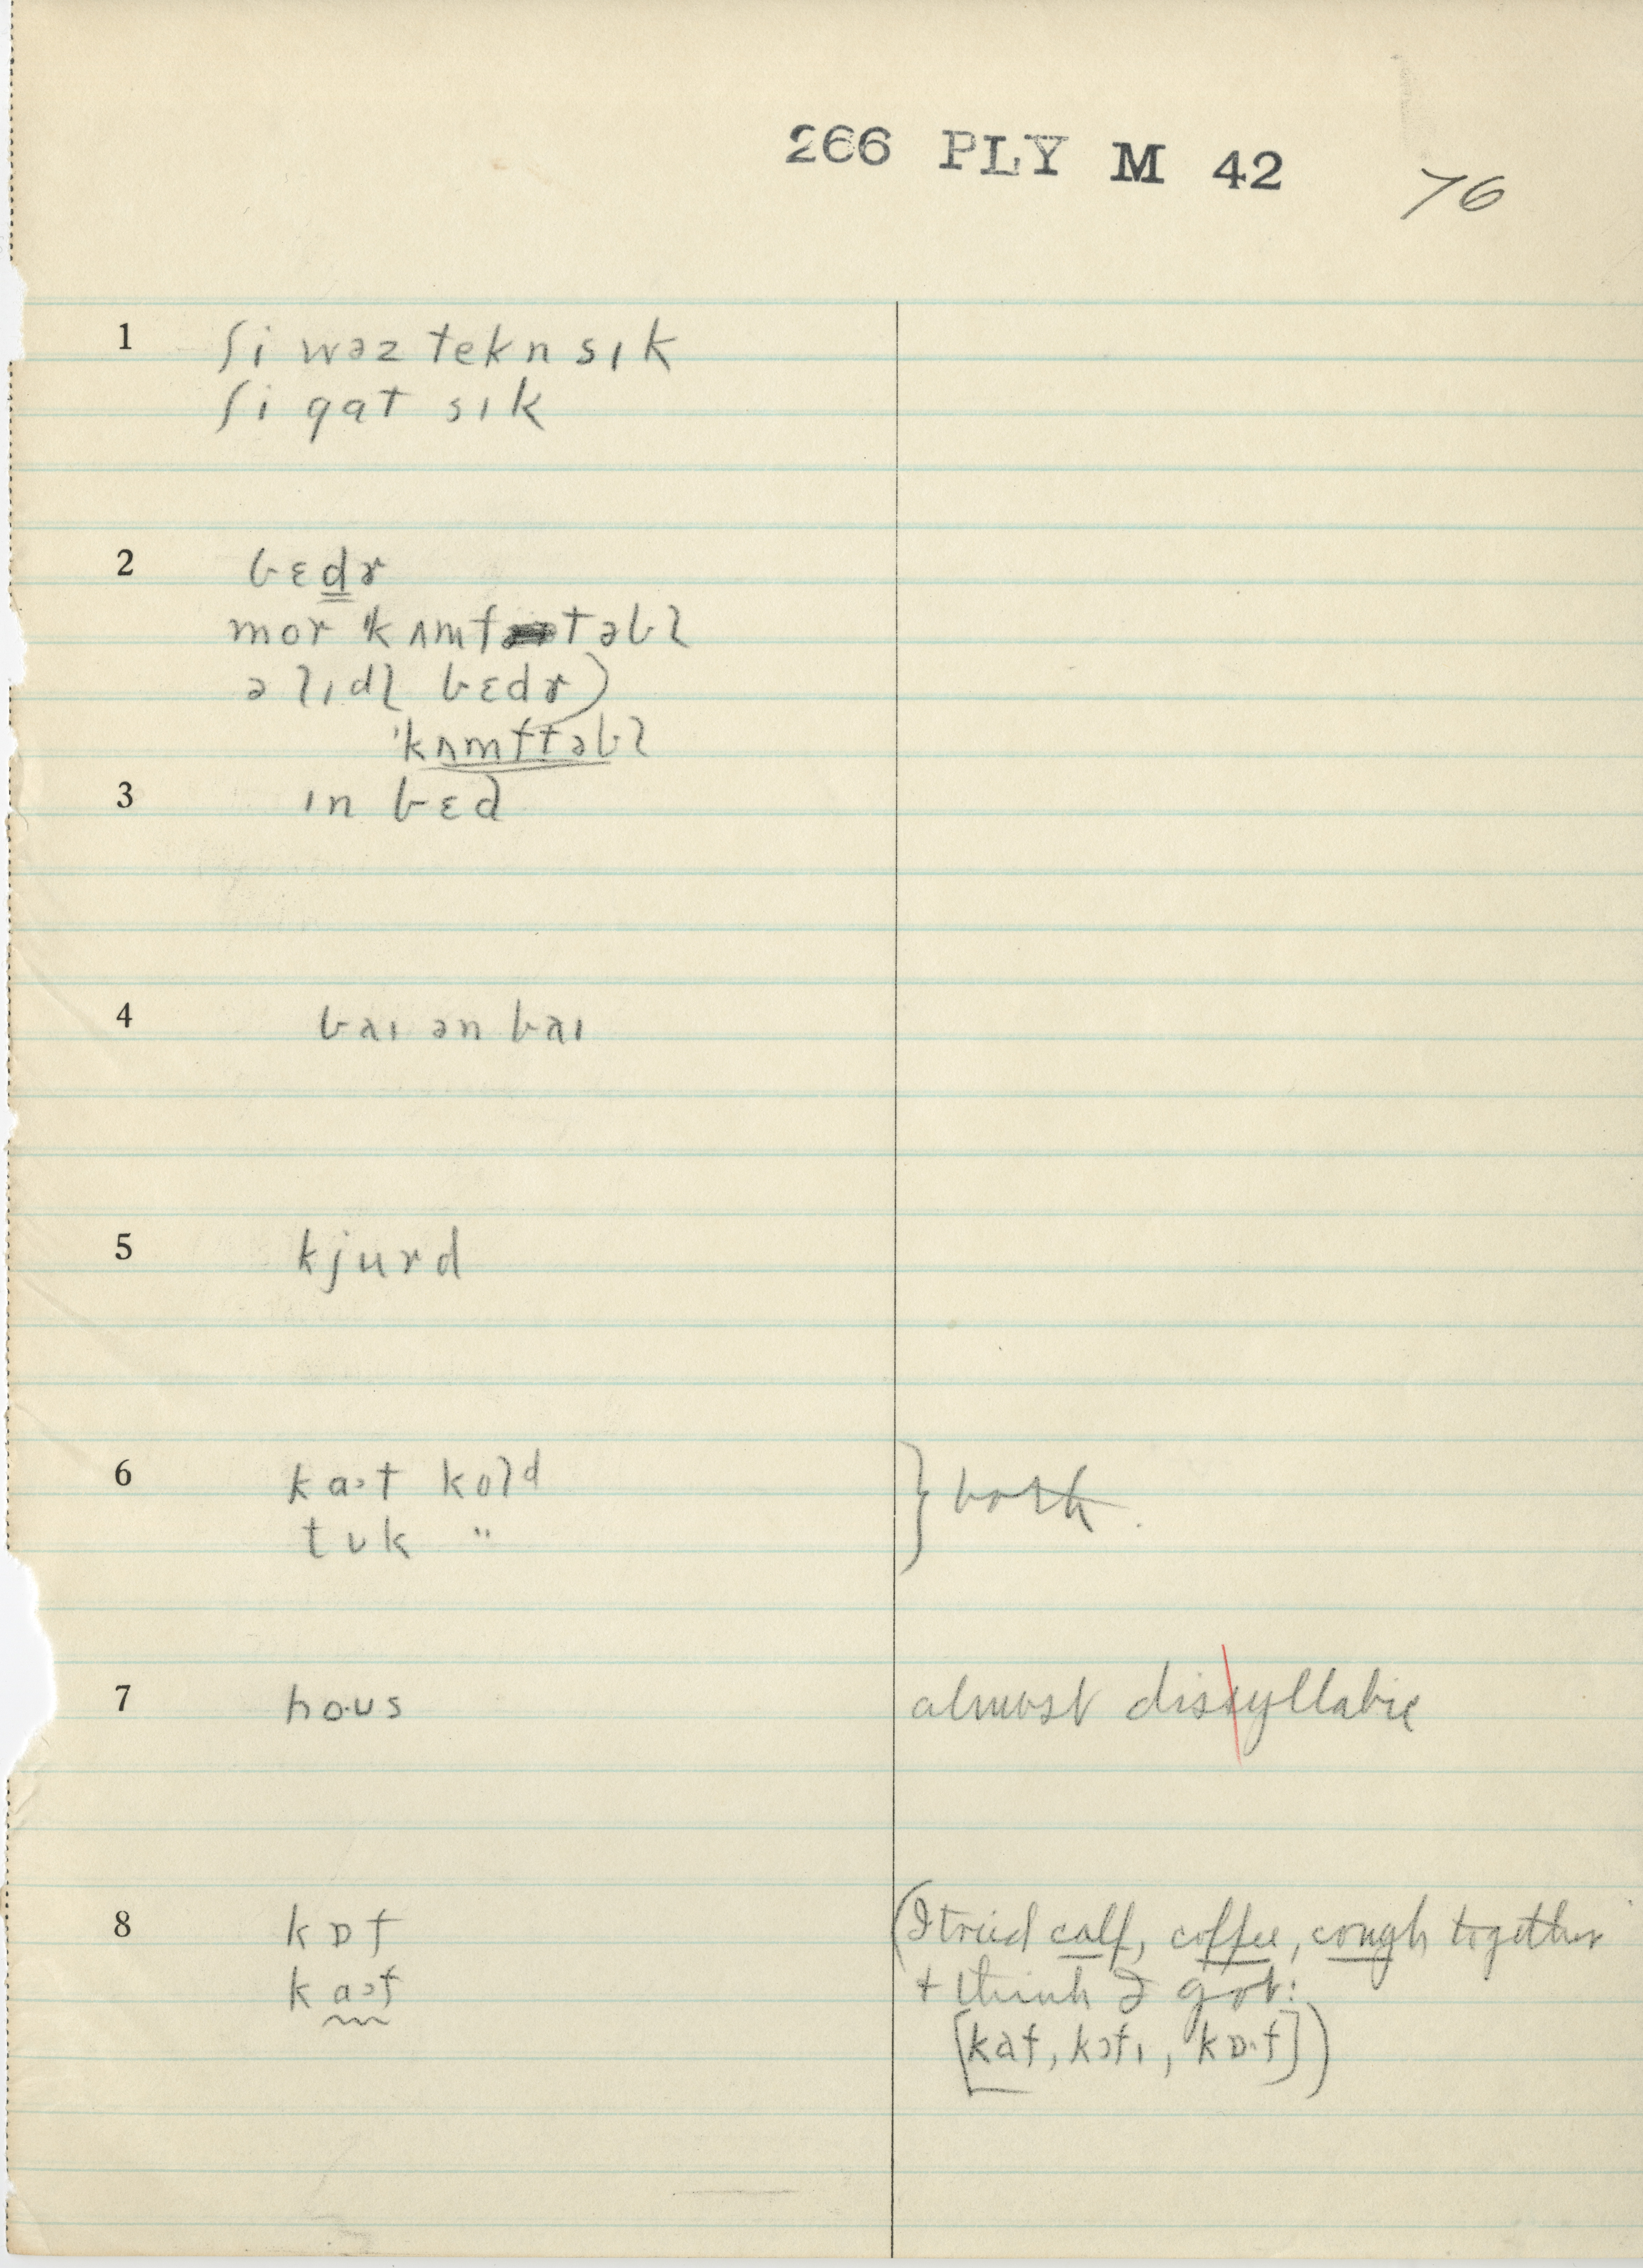 266 PLY M 42 76
1 ʃi wəz tekn sɪk
ʃi gat sɪk
2 bɛdr
mor ˈkʌmftəbl
ə lɪdl bɛdr)
ˈkʌmftəbl
3 ɪn bɛd
4 baɪ ən baɪ
5 kjurd
6 kaət kold } both.
tʊk "
7 ho·ʊs almost dissyllabic
8 kɒf (I tried calf, coffee, cough together
kaəf + think I got:
[kaf, kɔfɪ, kɒ·f])